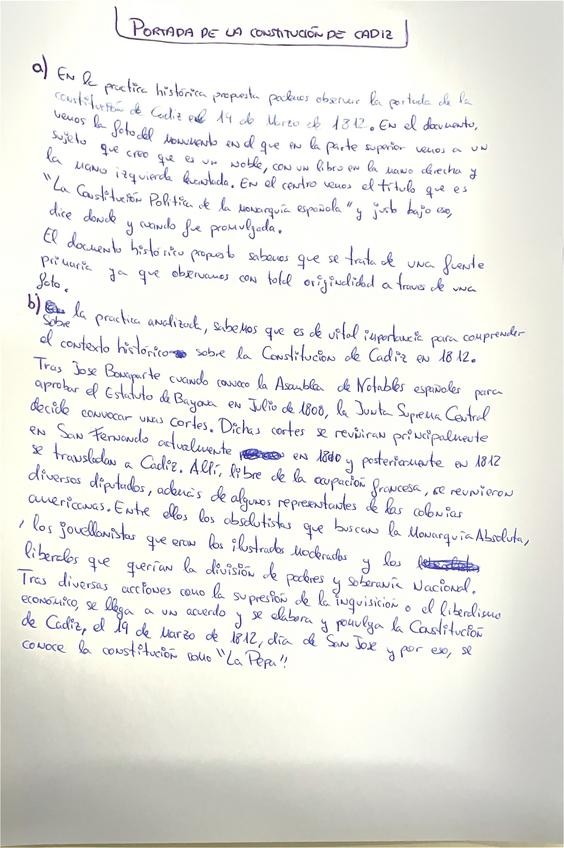 PORTADA DE LA CONSTITUCIÓN DE CADIZ
a) En la practica histórica propuesta podemos observar la portada de la
constitución de Cadiz el 19 de Marzo de 1812. En el documento,
vemos la foto del Monumento en el que en la parte superior vemos a un
sujeto que creo que es un noble, con un libro en la mano derecha y
la mano izquierda levantada. En el centro vemos el título que es
"La Constitución Politica de la Monarquía española" y justo bajo eso,
dice donde y cuando fue promulgada.
El documento histórico propuesto sabemos que se trata de una fuente
primaria ya que observamos con total originalidad a traves de una
foto.
b) Sobre la practica analizada, sabemos que es de vital importancia para comprender
el contexto histórico sobre la Constitucion de Cadiz en 1812.
Tras Jose Bonaparte cuando convoco la Asamblea de Notables españoles para
aprobar el Estatuto de Bayona en Julio de 1808, la Junta Suprema Central
decide convocar unas cortes. Dichas cortes se reuniran principalmente
en San Fernando actualmente en 1810 y posteriormente en 1812
se trasladan a Cádiz. Allí, libre de la ocupación francesa, se reunieron
diversos diputados, además de algunos representantes de las colonias
americanas. Entre ellos los absolutistas que buscan la Monarquía Absoluta,
, los jovellanistas que eran los ilustrados moderados y los
liberales que querían la división de poderes y soberanía Nacional.
Tras diversas acciones como la supresión de la inquisición o el liberalismo
económico, se llega a un acuerdo y se elabora y pomulga la Constitución
de Cadiz, el 19 de Marzo de 1812, día de San Jose y por eso, se
conoce la constitución como "La Pepa".